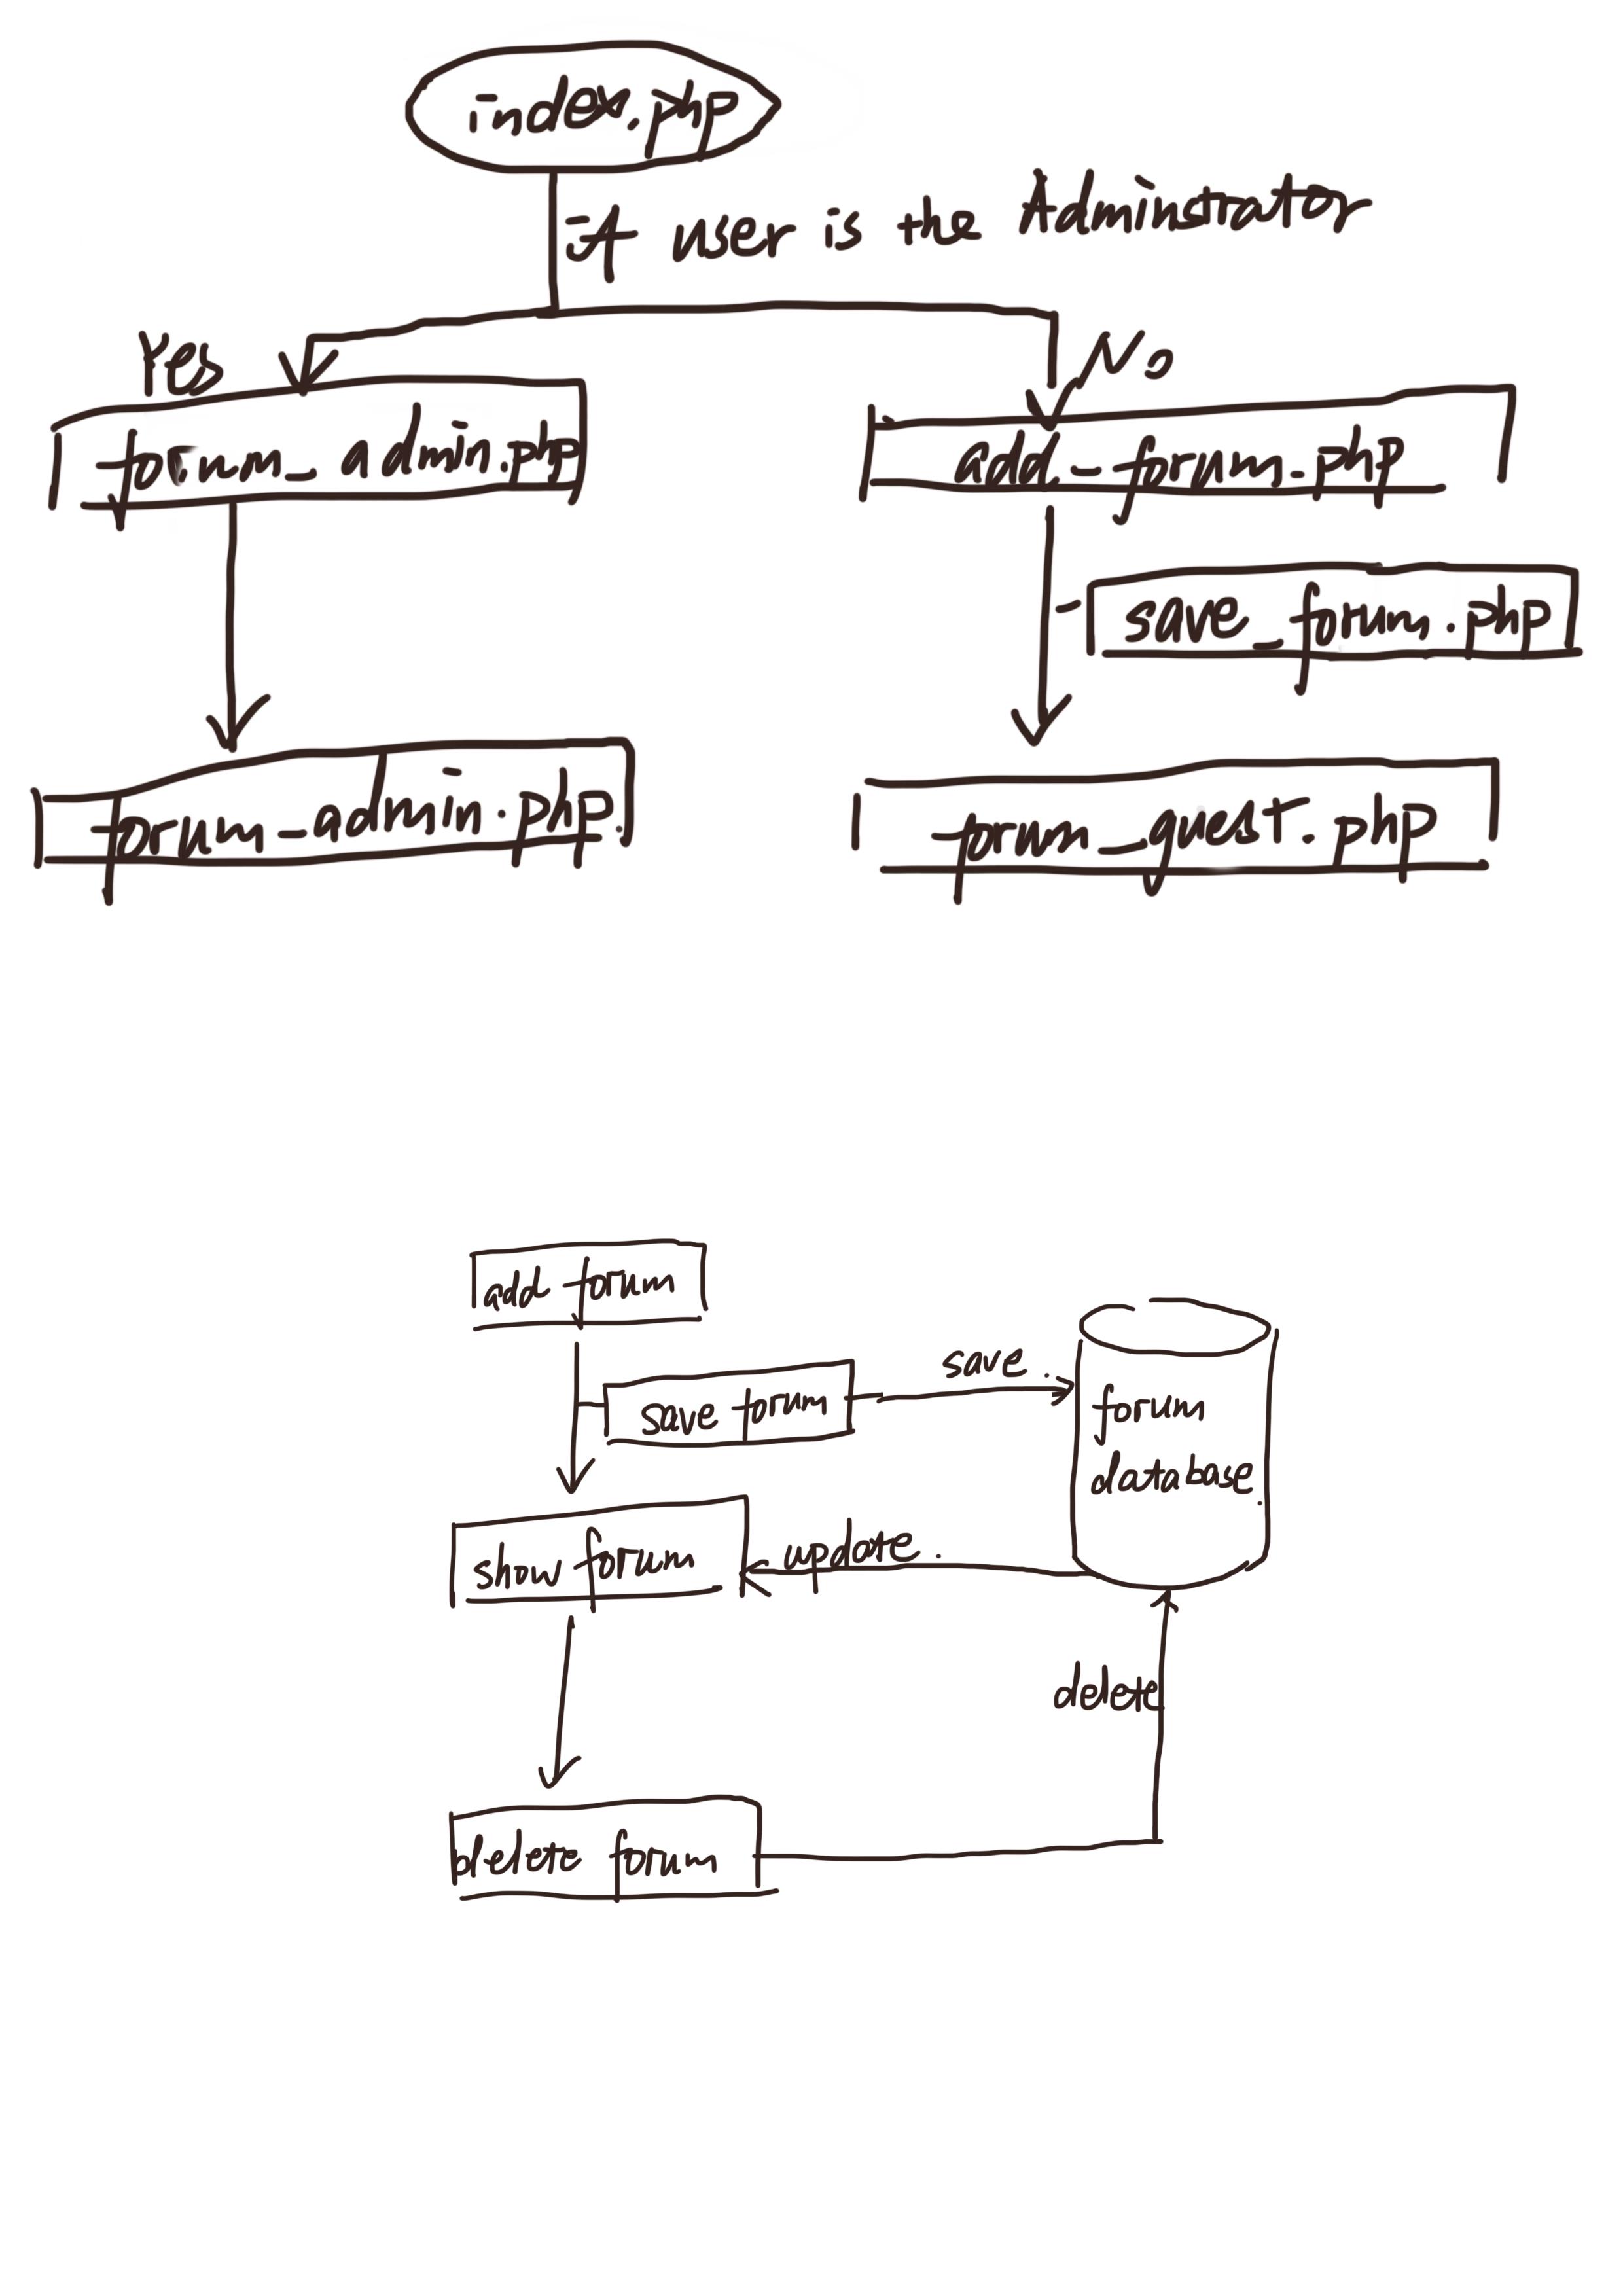 index.php
If user is the Adminstrator
Yes
No
forum_admin.php
add_forum.php
save_forum.php
forum_admin.php.
forum_guest.php
add forum
save forum
save.
forum
database.
show forum
update.
delete
Delete forum